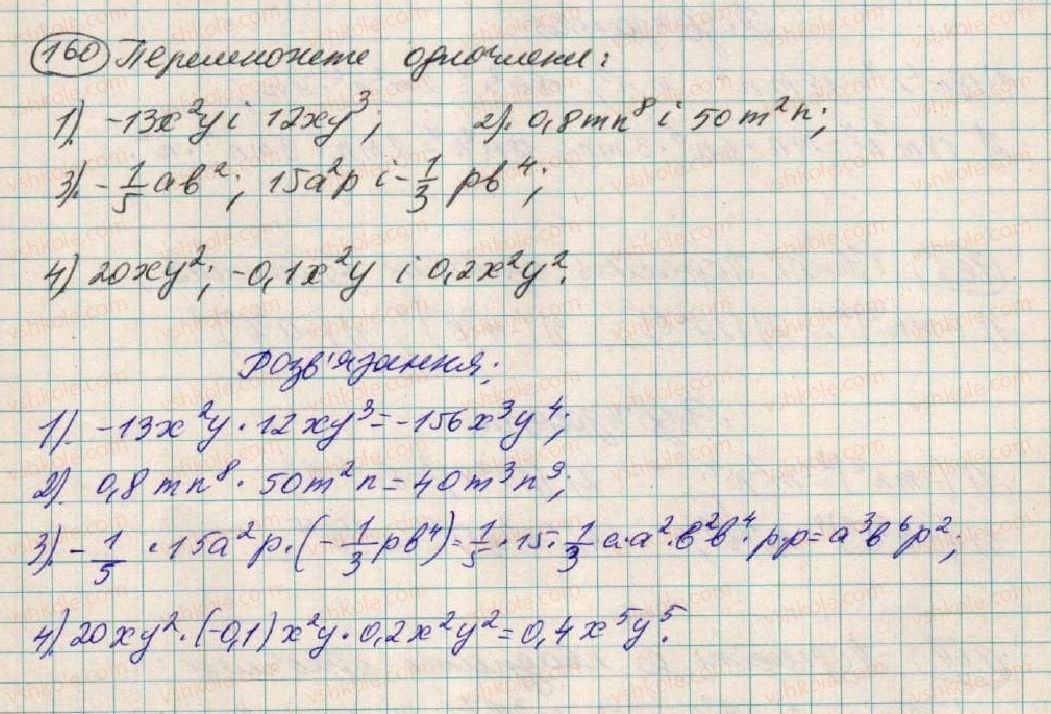 160 Перемножете одночлени:
1). -13x²y і 12xy³; 2). 0,8mn⁸ і 50m²n;
3). -1/5 ab²; 15a²p і -1/3 pb⁴;
4) 20xy²; -0,1x²y і 0,2x²y².
Розв'язання;
1). -13x²y · 12xy³ = -156x³y⁴;
2). 0,8mn⁸ · 50m²n = 40m³n⁹;
3). -1/5 · 15a²p · (-1/3 pb⁴) = 1/5 · 15 · 1/3 a·a²·b²b⁴·p·p = a³b⁶p²;
4). 20xy² · (-0,1)x²y · 0,2x²y² = 0,4x⁵y⁵.